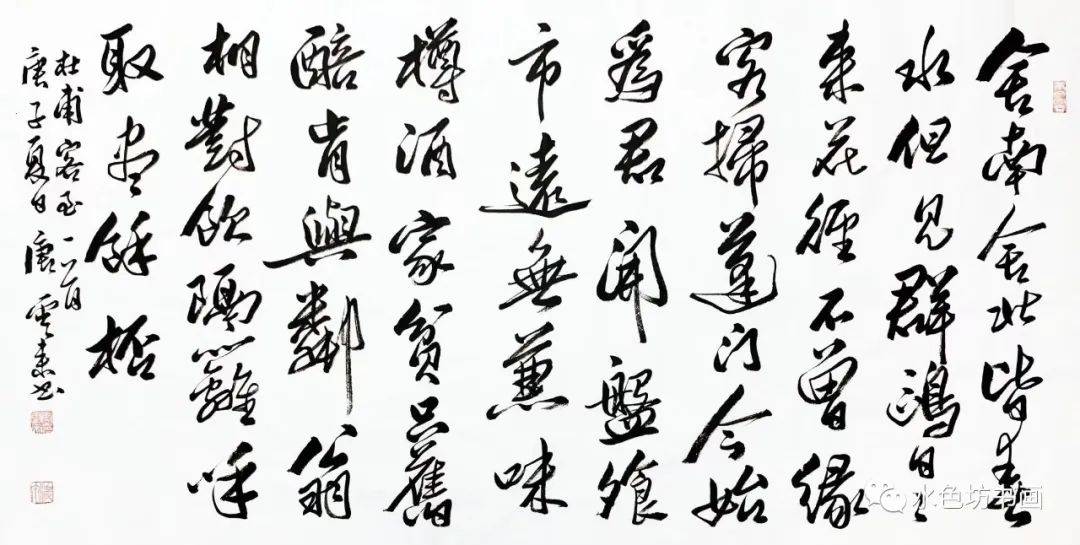 舍南舍北皆春
水但見群鷗日〻
來花徑不曾緣
客掃蓬門今始
爲君開盤飧
市遠無兼味
樽酒家貧只舊
醅肯與鄰翁
相對飲隔籬呼
取盡餘杯
杜甫客至一首
庚子夏日唐雲來書
水色坊书画